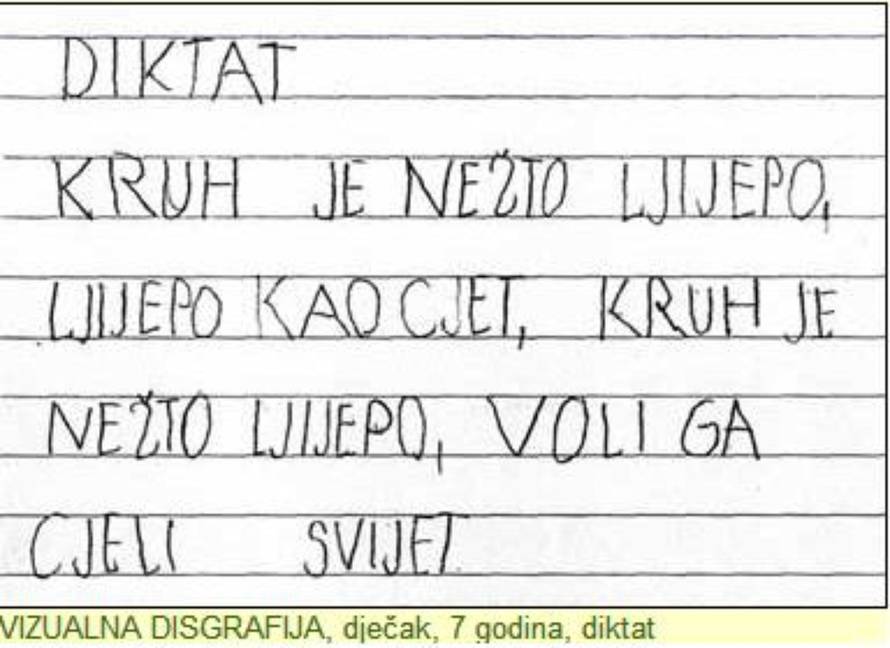 DIKTAT
KRUH JE NEŽTO LJIJEPO,
LJIJEPO KAO CJET, KRUH JE
NEŽTO LJIJEPO, VOLI GA
CJELI SVIJET
VIZUALNA DISGRAFIJA, dječak, 7 godina, diktat